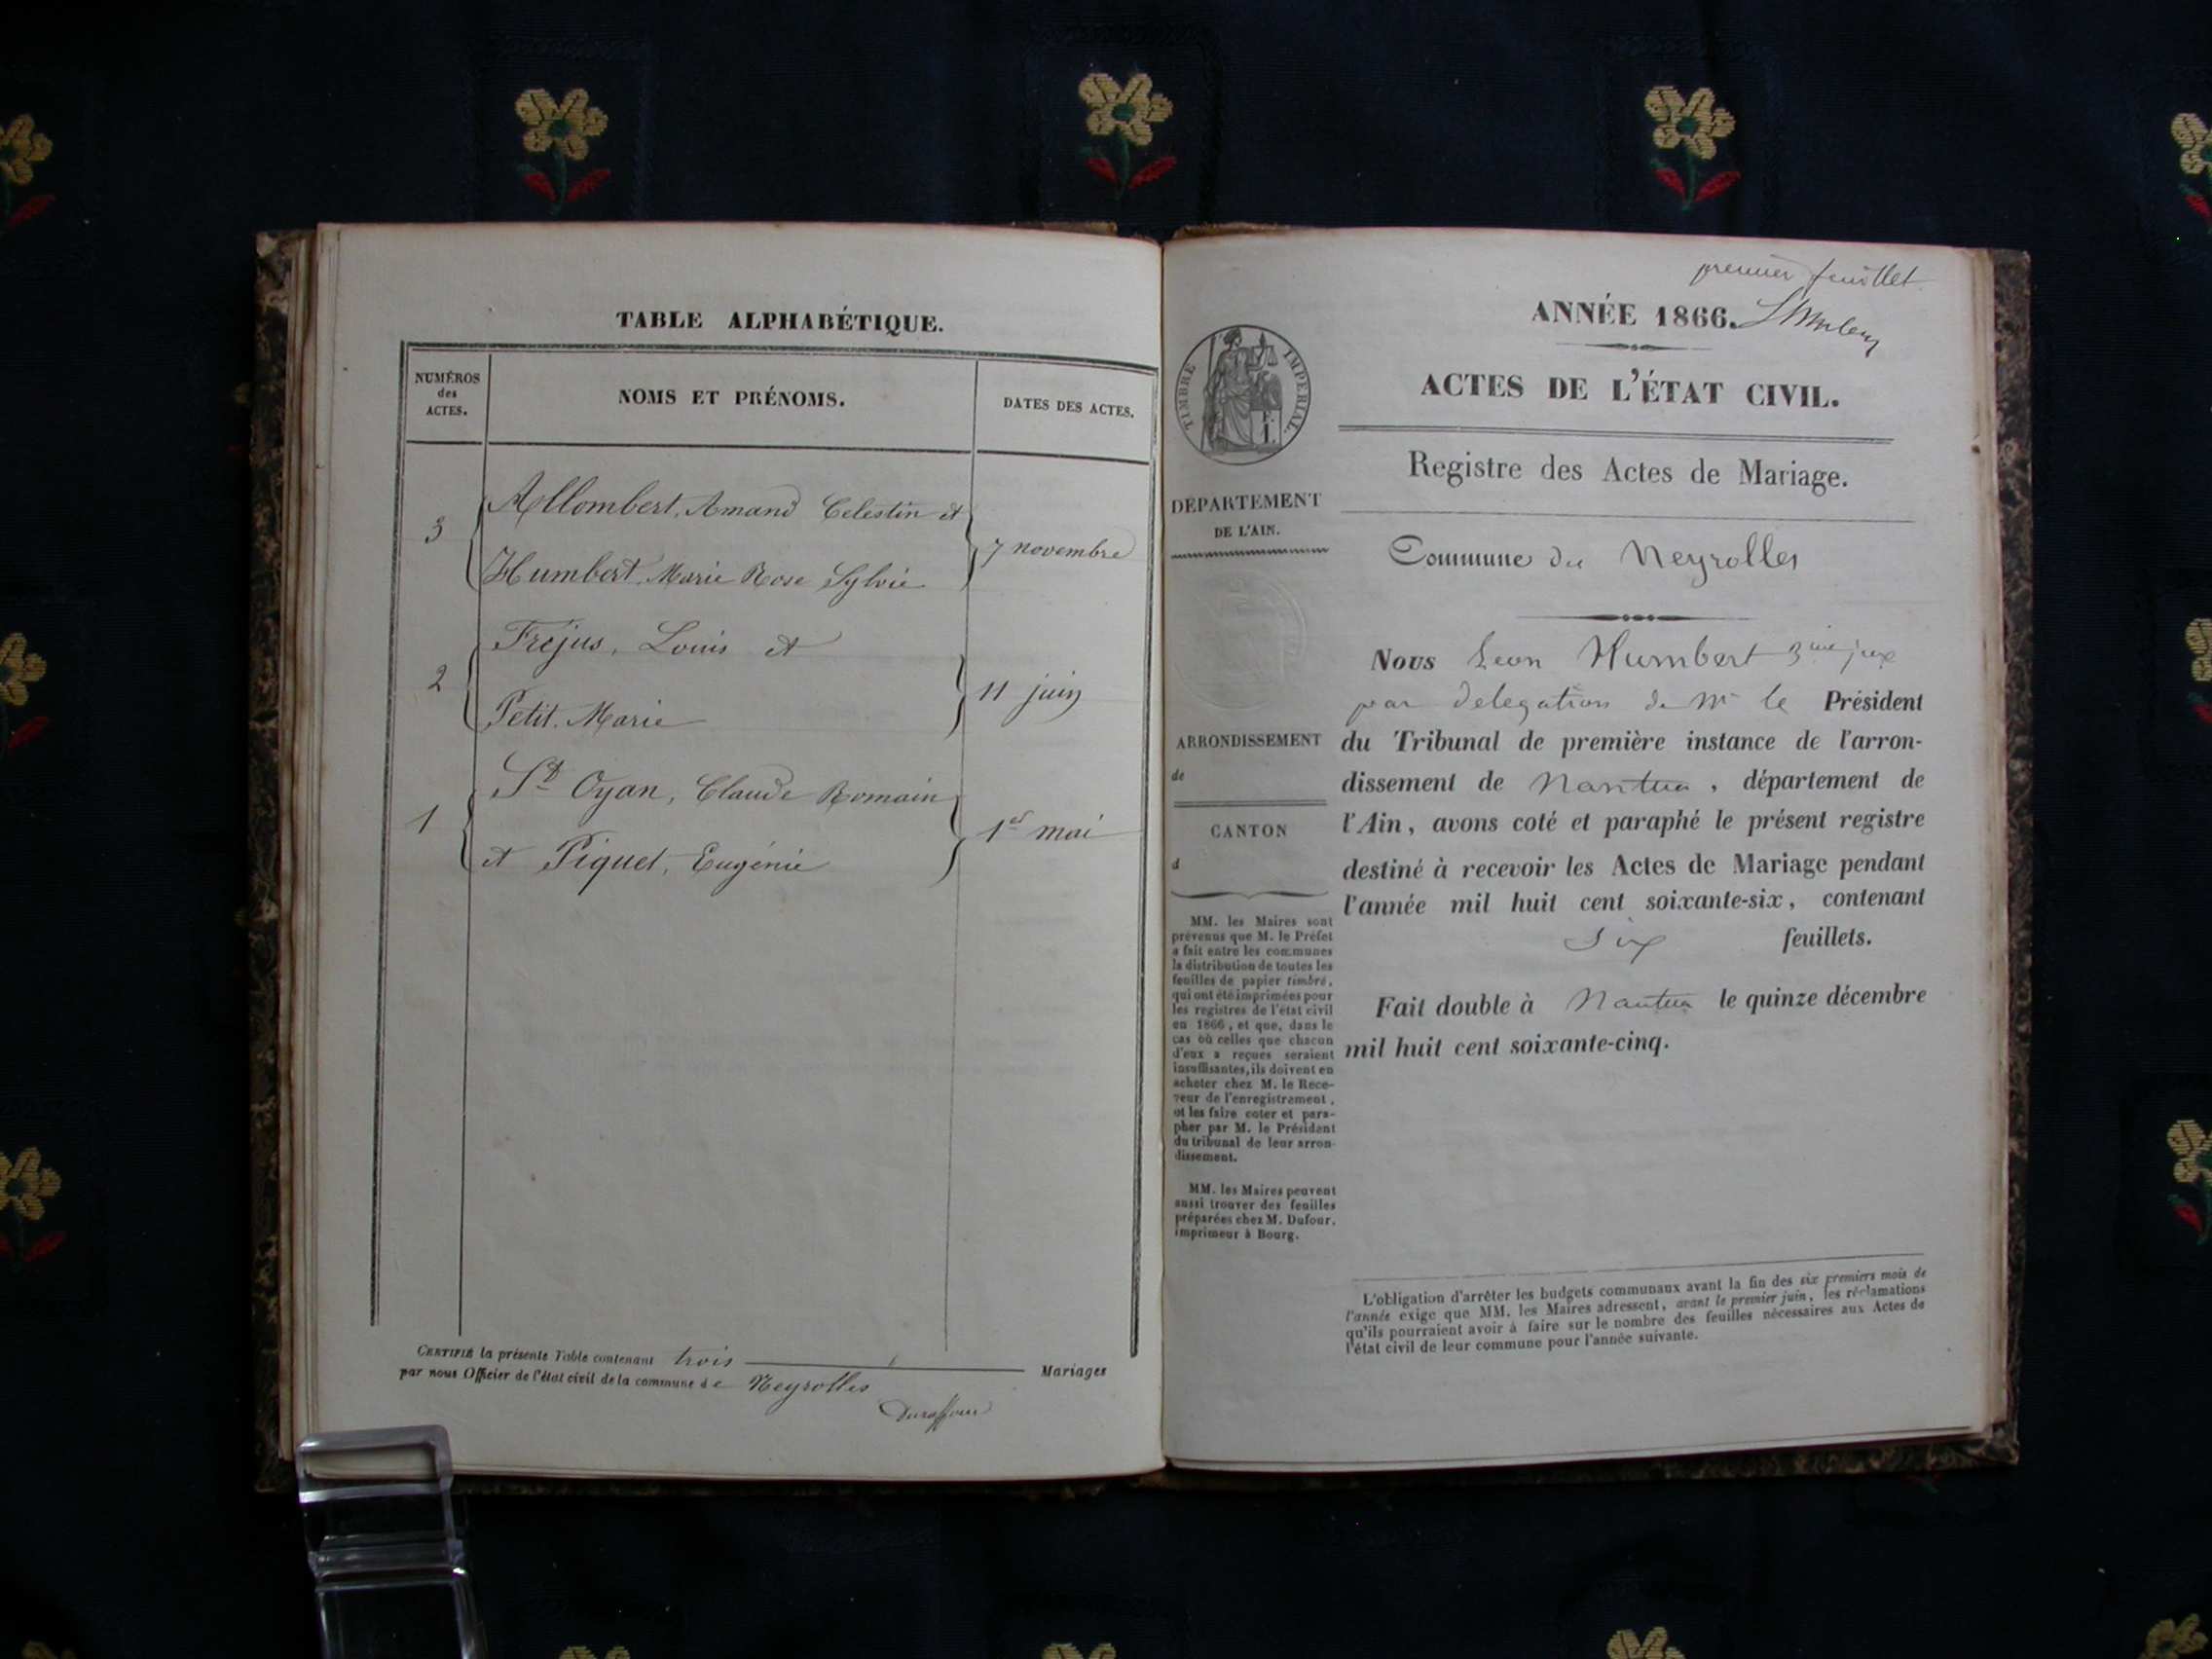 TABLE ALPHABÉTIQUE.
NUMÉROS
des
ACTES.
NOMS ET PRÉNOMS.
DATES DES ACTES.
3
Allombert, Amand Celestin et
Humbert, Marie Rose Sylvie
7 novembre
2
Fréjus, Louis et
Petit, Marie
11 juin
1
St Oyan, Claude Romain
et Piquet, Eugénie
1er mai
CERTIFIÉ la présente Table contenant trois Mariages
par nous Officier de l'état civil de la commune de Neyrolles
Duraffour
premier feuillet
ANNÉE 1866.
ACTES DE L'ÉTAT CIVIL.
Registre des Actes de Mariage.
Commune de Neyrolles
TIMBRE IMPÉRIAL.
DÉPARTEMENT
DE L'AIN.
ARRONDISSEMENT
de
CANTON
d
MM. les Maires sont
prévenus que M. le Préfet
a fait entre les communes
la distribution de toutes les
feuilles de papier timbré,
qui ont été imprimées pour
les registres de l'état civil
en 1866, et que, dans le
cas où celles que chacun
d'eux a reçues seraient
insuffisantes, ils doivent en
acheter chez M. le Rece-
veur de l'enregistrement,
et les faire coter et para-
pher par M. le Président
du tribunal de leur arron-
dissement.
MM. les Maires peuvent
aussi trouver des feuilles
préparées chez M. Dufour,
imprimeur à Bourg.
Nous Leon Humbert 3me juge
par delegation de Mr le Président
du Tribunal de première instance de l'arron-
dissement de Nantua, département de
l'Ain, avons coté et paraphé le présent registre
destiné à recevoir les Actes de Mariage pendant
l'année mil huit cent soixante-six, contenant
six feuillets.
Fait double à Nantua le quinze décembre
mil huit cent soixante-cinq.
L'obligation d'arrêter les budgets communaux avant la fin des six premiers mois de
l'année exige que MM. les Maires adressent, avant le premier juin, les réclamations
qu'ils pourraient avoir à faire sur le nombre des feuilles nécessaires aux Actes de
l'état civil de leur commune pour l'année suivante.